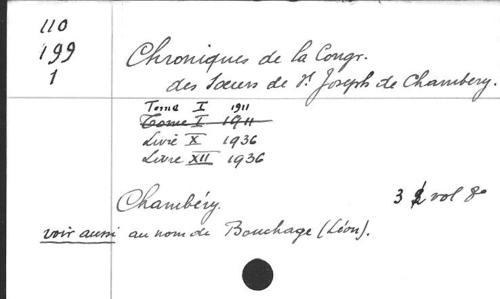 110
199
1
Chroniques de la Congr.
des Sœurs de St Joseph de Chambéry.
Tome I 1911
Tome I 1911
Livre X 1936
Livre XII 1936
Chambéry.
3 vol 8o
voir aussi au nom de Bouchage (Léon).